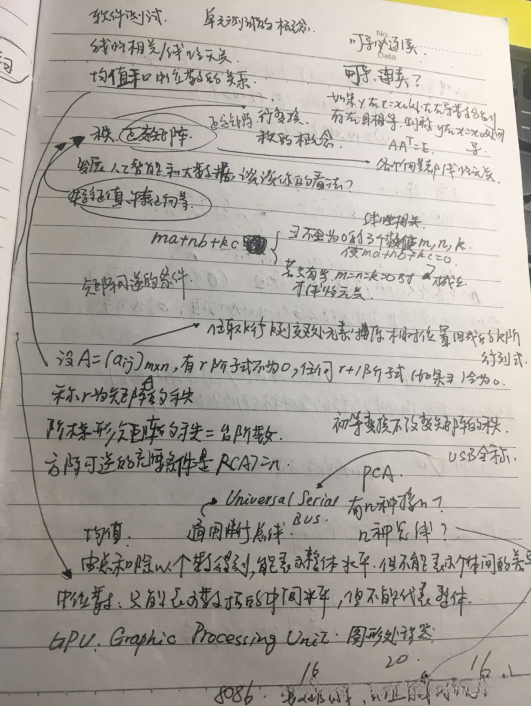 软件测试. 单元测试的概念.
No.
Date
线性相关/线性无关
可导必连续
均值和中位数的关系.
可导, 连续?
如果y在x=x₀处左右导数分别
存在且相等, 则称y在x=x₀处可
导.
秩, 正交矩阵
行变换
秩的概念
AAᵀ=E,
各个向量线性无关
人工智能和大数据 谈谈你的看法?
特征值,特征向量.
线性相关.
ma+nb+kc
不全为0的3个数m,n,k.
使ma+nb+kc=0.
m=n=k=0时
才线性无关
矩阵可逆的条件
任取k行k列交叉处元素 按原相对位置组成的k阶
行列式.
设A=(aij)m×n, 有r阶子式不为0, 任何r+1阶子式(如果有)全为0.
称r为矩阵A的秩
阶梯形矩阵的秩=台阶数.
初等变换不改变矩阵的秩.
方阵可逆的充要条件是R(A)=n.
USB全称.
PCA
Universal Serial
BUS.
有n种接口?
均值
通用串行总线
n种总线?
由总和除以个数得到, 能表示整体水平. 但不能表示个体间的差异
中位数: 只能表示数据的中间水平, 但不能代表整体.
GPU. Graphic Processing Unit. 图形处理器
16
20
16
8086.